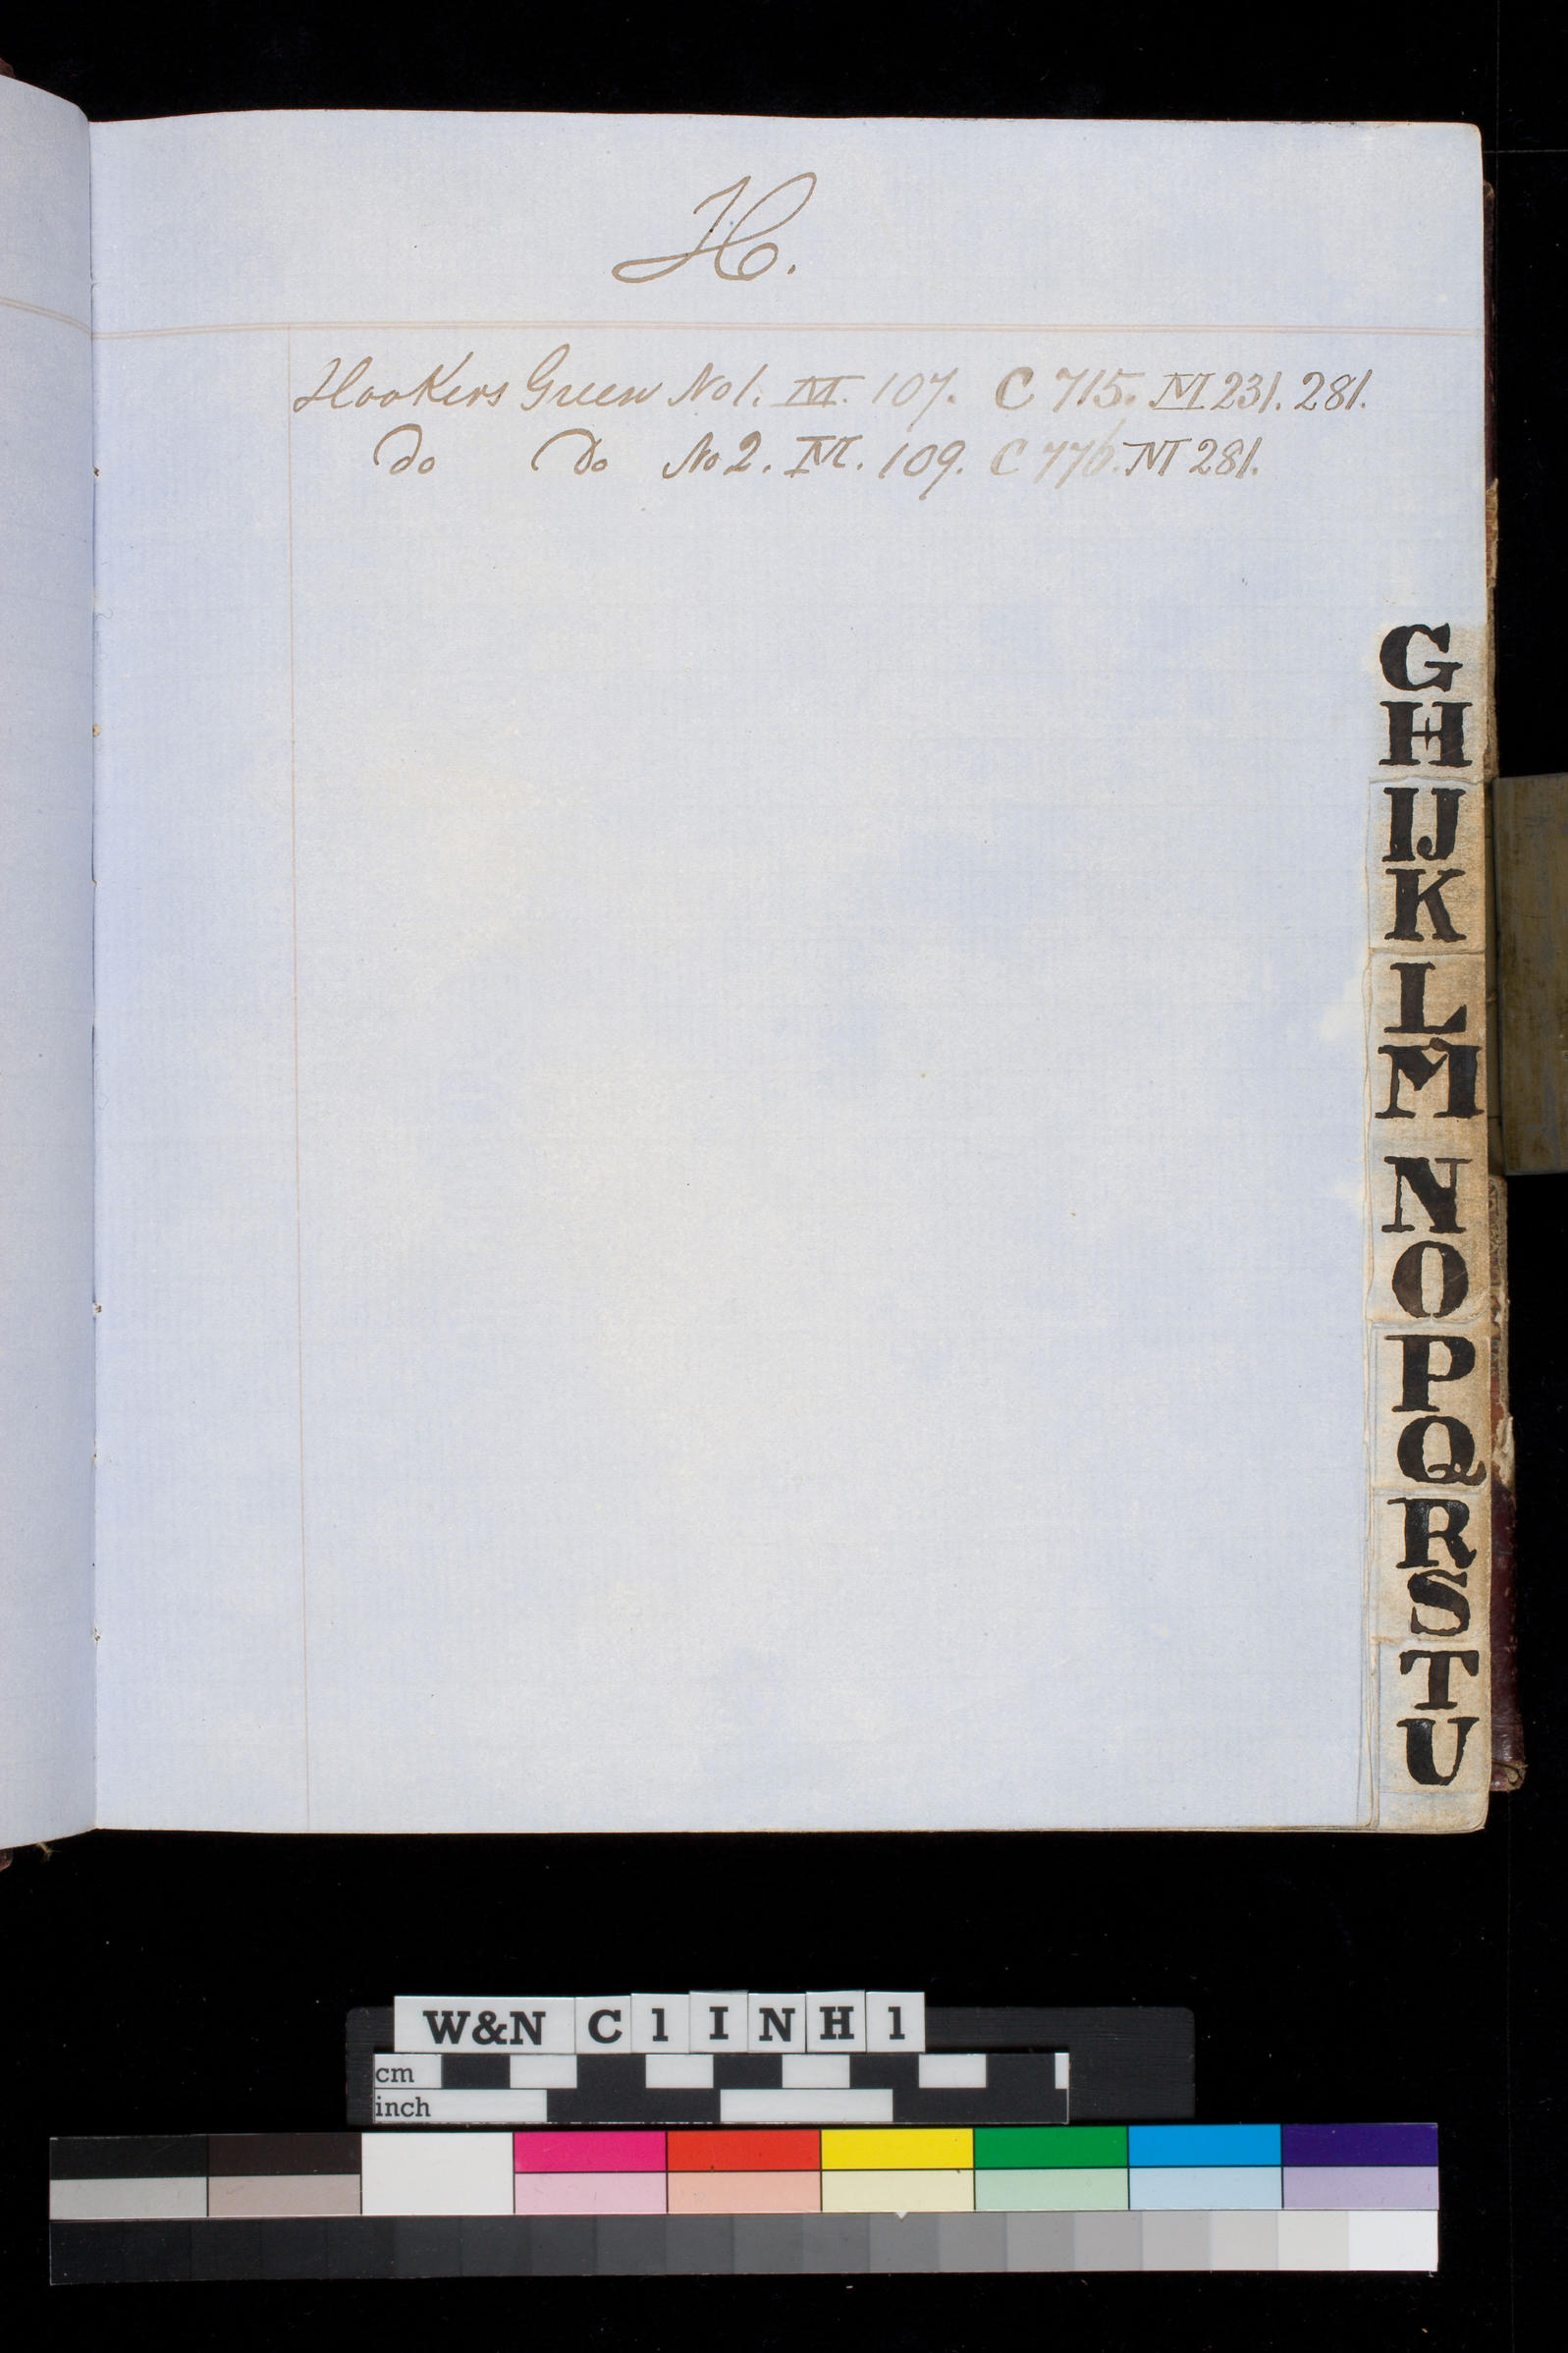 H.
Hookers Green No 1. M. 107. C 715. M 231. 281.
do Do No 2. M. 109. C 776. M 281.
G
H
IJ
K
L
M
N
O
P
Q
R
S
T
U
W&N C 1 I N H 1
cm
inch